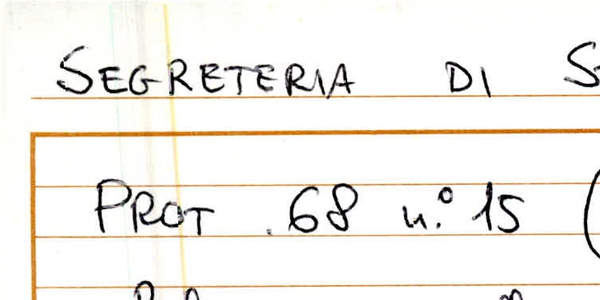 SEGRETERIA DI
PROT. 68 n.° 15 (